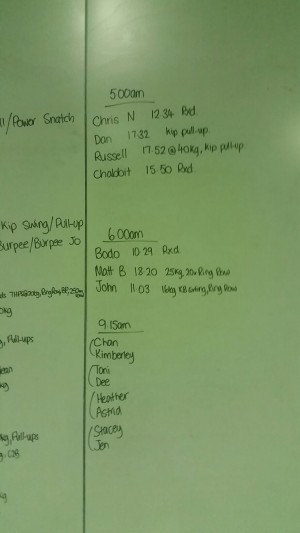 5:00am
Chris N 12.34 Rxd.
Dan 17.32 kip pull-up
Russell 17.52 @ 40kg, kip pull-up
15.50 Rxd.
/Power Snatch
Kip Swing/Pull-up
Burpee/Burpee Jo
6:00am
Bodo 10.29 Rxd.
Matt B 18.20 25kg, 20 Ring Row
John 11.03 16kg KB swing, Ring Row
9.15am
Chan
Kimberley
Toni
Dee
Heather
Astrid
Stacey
Jen
, Pull-ups
ean
kg
kg, Pull-ups
kg